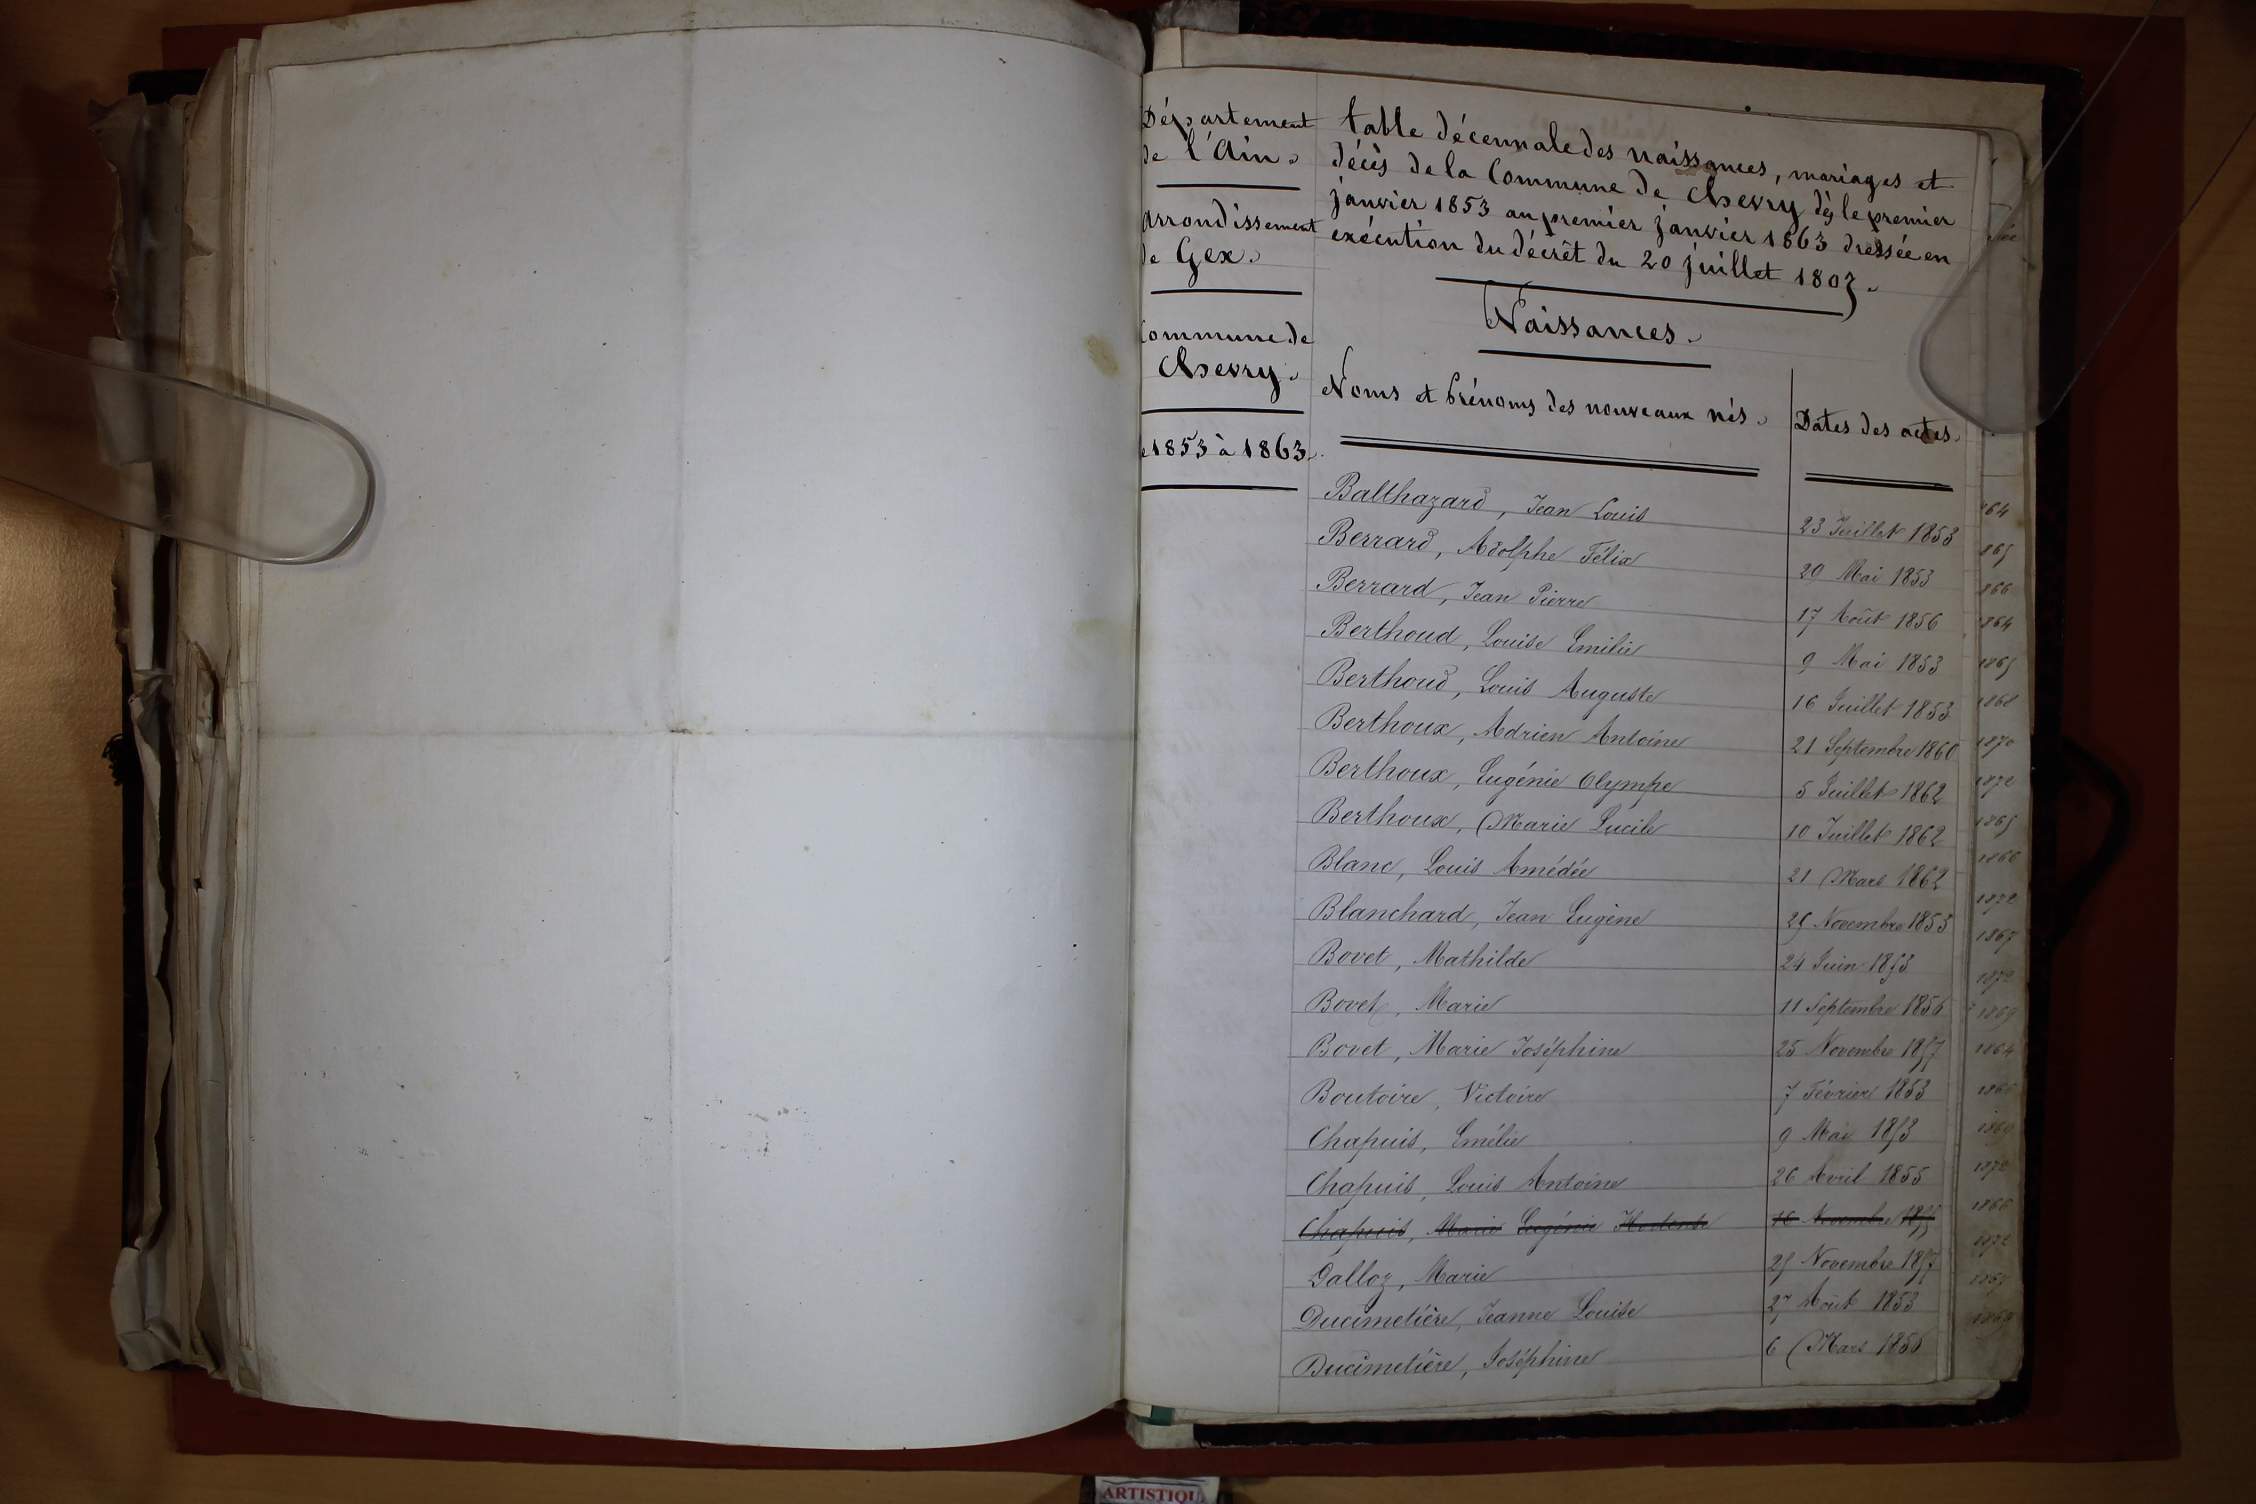 Département
de l'Ain.
Arrondissement
de Gex.
Commune de
Chevry.
1853 à 1863.
table décennale des naissances, mariages et
décès de la Commune de Chevry dès le premier
janvier 1853 au premier janvier 1863 dressée en
exécution du décrêt du 20 juillet 1803.
Naissances.
Noms et Prénoms des nouveaux nés. Dates des actes.
Balthazard, Jean Louis 23 Juillet 1853
Berrard, Adolphe Félix 29 Mai 1853
Berrard, Jean Pierre 17 Août 1856
Berthoud, Louise Emilie 9 Mai 1853
Berthoud, Louis Auguste 16 Juillet 1853
Berthoux, Adrien Antoine 21 Septembre 1860
Berthoux, Eugénie Olympe 5 Juillet 1862
Berthoux, Marie Lucile 10 Juillet 1862
Blanc, Louis Amédée 21 Mars 1862
Blanchard, Jean Eugène 25 Novembre 1853
Bovet, Mathilde 24 Juin 1853
Bovet, Marie 11 Septembre 1856
Bovet, Marie Joséphine 25 Novembre 1857
Boutoire, Victoire 7 Février 1853
Chapuis, Emélie 9 Mai 1853
Chapuis, Louis Antoine 26 Avril 1855
Chapuis, Marie Eugénie Hortense 16 Novembre 1855
Dalloz, Marie 25 Novembre 1857
Ducimetière, Jeanne Louise 27 Août 1853
Ducimetière, Joséphine 6 Mars 1856
1864
1865
1868
1870
1872
1865
1866
1872
1867
1872
1869
1864
1872
1866
1872
ARTISTIQU